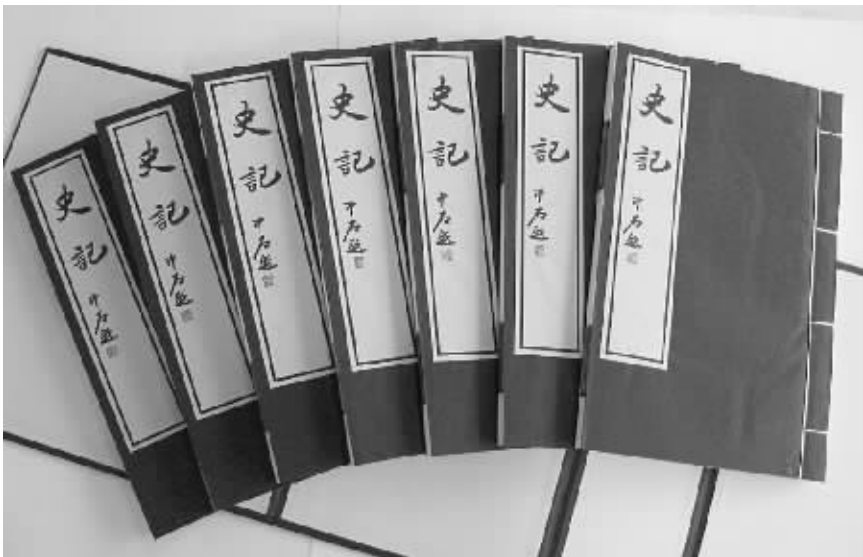 史記
中石題
史記
中石題
史記
中石題
史記
中石題
史記
中石題
史記
中石題
史記
中石題